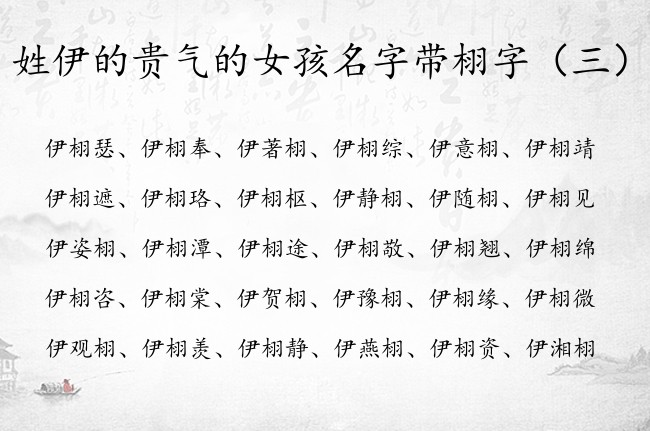 姓伊的贵气的女孩名字带栩字（三）
伊栩瑟、伊栩奉、伊著栩、伊栩综、伊意栩、伊栩靖
伊栩遮、伊栩珞、伊栩枢、伊静栩、伊随栩、伊栩见
伊姿栩、伊栩潭、伊栩途、伊栩敬、伊栩翘、伊栩绵
伊栩咨、伊栩棠、伊贺栩、伊豫栩、伊栩缘、伊栩微
伊观栩、伊栩羡、伊栩静、伊燕栩、伊栩资、伊湘栩